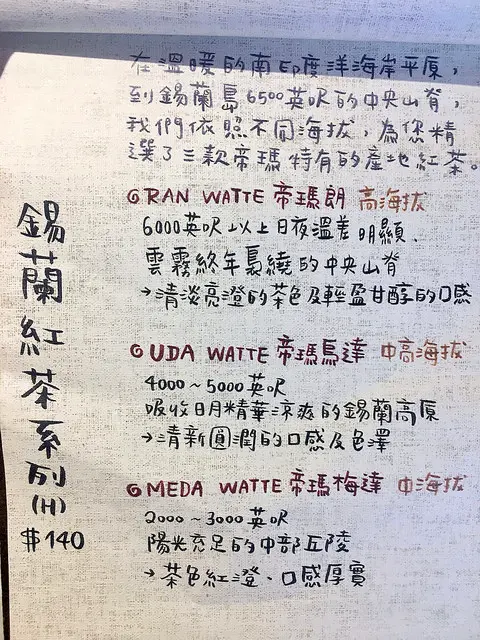 在溫暖的南印度洋海岸平原，
到錫蘭島6500英呎的中央山脊，
我們依照不同海拔，為您精
選了三款帝瑪特有的產地紅茶。
RAN WATTE 帝瑪朗 高海拔
6000英呎以上日夜溫差明顯、
雲霧終年裊繞的中央山脊
→清淡亮澄的茶色及輕盈甘醇的口感
UDA WATTE 帝瑪烏達 中高海拔
4000～5000英呎
吸收日月精華涼爽的錫蘭高原
→清新圓潤的口感及色澤
MEDA WATTE 帝瑪梅達 中海拔
2000～3000英呎
陽光充足的中部丘陵
→茶色紅澄、口感厚實
錫蘭紅茶系列
(H)
$140